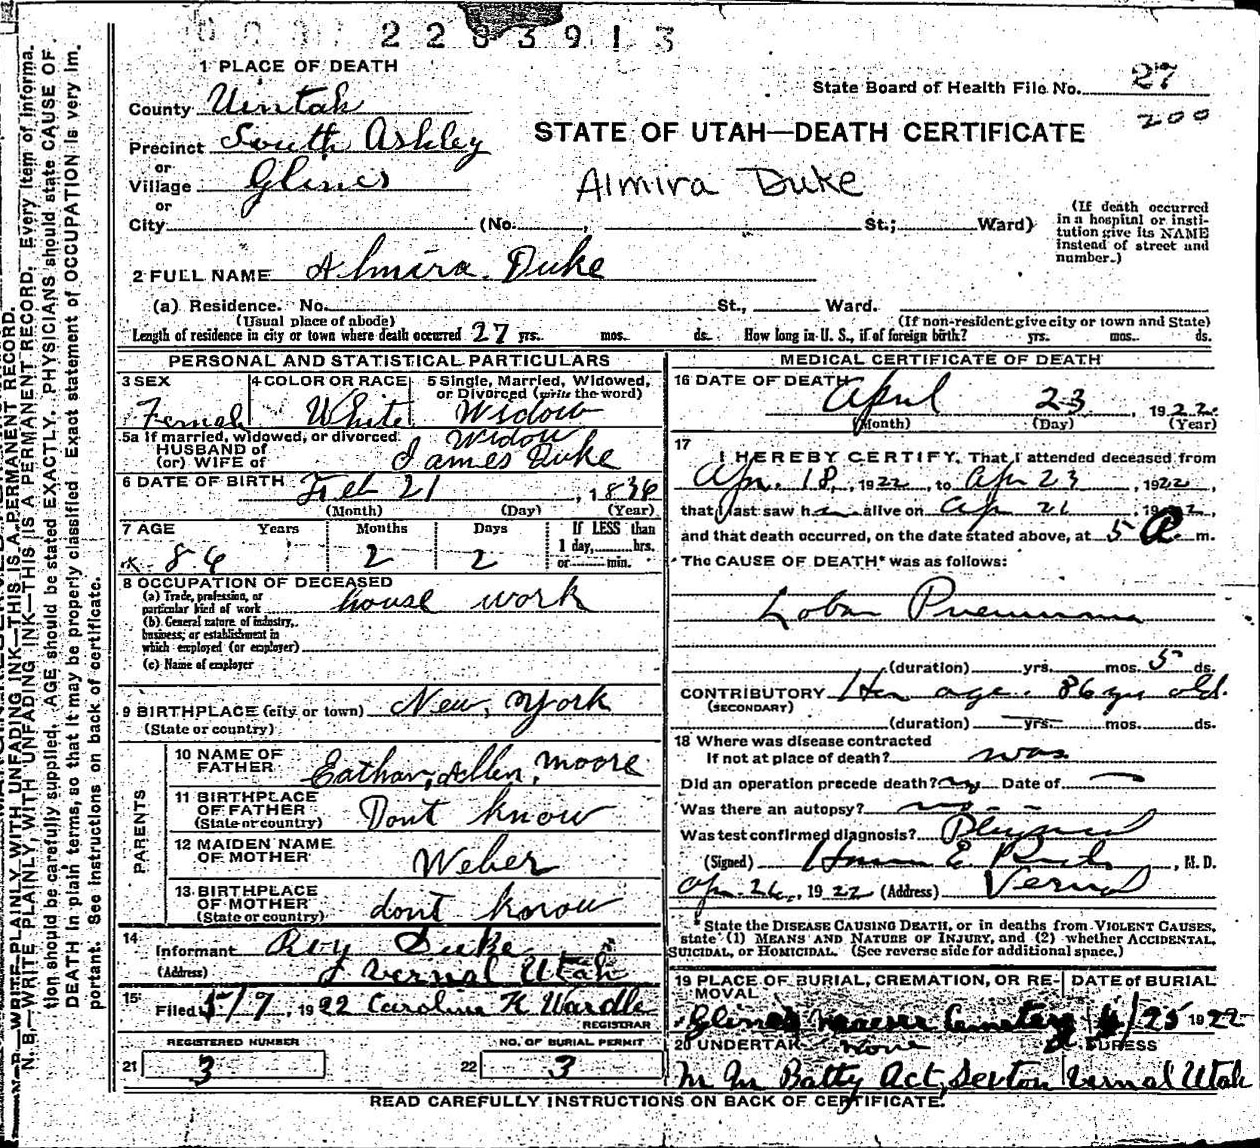 2283913
1 PLACE OF DEATH
State Board of Health File No. 27
200
County Uintah
STATE OF UTAH—DEATH CERTIFICATE
Precinct South Ashley
or
Village Glines
Almira Duke
or
City (No. , St.; Ward)
(If death occurred in a hospital or institution give its NAME instead of street and number.)
2 FULL NAME Almira Duke
(a) Residence. No. St., Ward.
(Usual place of abode) (If non-resident give city or town and State)
Length of residence in city or town where death occurred 27 yrs. mos. ds. How long in U. S., if of foreign birth? yrs. mos. ds.
PERSONAL AND STATISTICAL PARTICULARS
3 SEX 4 COLOR OR RACE 5 Single, Married, Widowed, or Divorced (write the word)
Female White Widow
5a If married, widowed, or divorced Widow
HUSBAND of
(or) WIFE of James Duke
6 DATE OF BIRTH Feb 21, 1836
(Month) (Day) (Year)
7 AGE Years Months Days If LESS than
1 day, hrs.
or min.
86 2 2
8 OCCUPATION OF DECEASED
(a) Trade, profession, or
particular kind of work house work
(b) General nature of industry,
business, or establishment in
which employed (or employer)
(c) Name of employer
9 BIRTHPLACE (city or town) New York
(State or country)
PARENTS
10 NAME OF
FATHER Eathan, Allen, Moore
11 BIRTHPLACE
OF FATHER Dont know
(State or country)
12 MAIDEN NAME
OF MOTHER Weber
13 BIRTHPLACE
OF MOTHER dont know
(State or country)
14
Informant Roy Duke
(Address) Vernal Utah
15
Filed 5/7, 1922 Carolina K Wardle
REGISTRAR
REGISTERED NUMBER NO. OF BURIAL PERMIT
21 3 22 3
MEDICAL CERTIFICATE OF DEATH
16 DATE OF DEATH
April 23, 1922
(Month) (Day) (Year)
17
I HEREBY CERTIFY, That I attended deceased from
Apr. 18, 1922, to Apr 23, 1922,
that I last saw h alive on Ap 21, 1922,
and that death occurred, on the date stated above, at 5 P m.
The CAUSE OF DEATH* was as follows:
Lobar Pneumonia
(duration) yrs. mos. 5 ds.
CONTRIBUTORY Her age. 86 yrs old.
(SECONDARY)
(duration) yrs. mos. ds.
18 Where was disease contracted
If not at place of death? was
Did an operation precede death? no Date of
Was there an autopsy? no
Was test confirmed diagnosis?
(Signed) E. , M. D.
Apr. 26, 1922 (Address) Vernal
* State the DISEASE CAUSING DEATH, or in deaths from VIOLENT CAUSES,
state (1) MEANS AND NATURE OF INJURY, and (2) whether ACCIDENTAL,
SUICIDAL, or HOMICIDAL. (See reverse side for additional space.)
19 PLACE OF BURIAL, CREMATION, OR RE- DATE of BURIAL
MOVAL
Maeser Cemetery 4/25 1922
20 UNDERTAK None ADDRESS
M M Batty Act, Sexton Vernal Utah
READ CAREFULLY INSTRUCTIONS ON BACK OF CERTIFICATE.
N. B.—WRITE PLAINLY, WITH UNFADING INK—THIS IS A PERMANENT RECORD. Every item of informa-
tion should be carefully supplied. AGE should be stated EXACTLY. PHYSICIANS should state CAUSE OF
DEATH in plain terms, so that it may be properly classified. Exact statement of OCCUPATION is very im-
portant. See instructions on back of certificate.